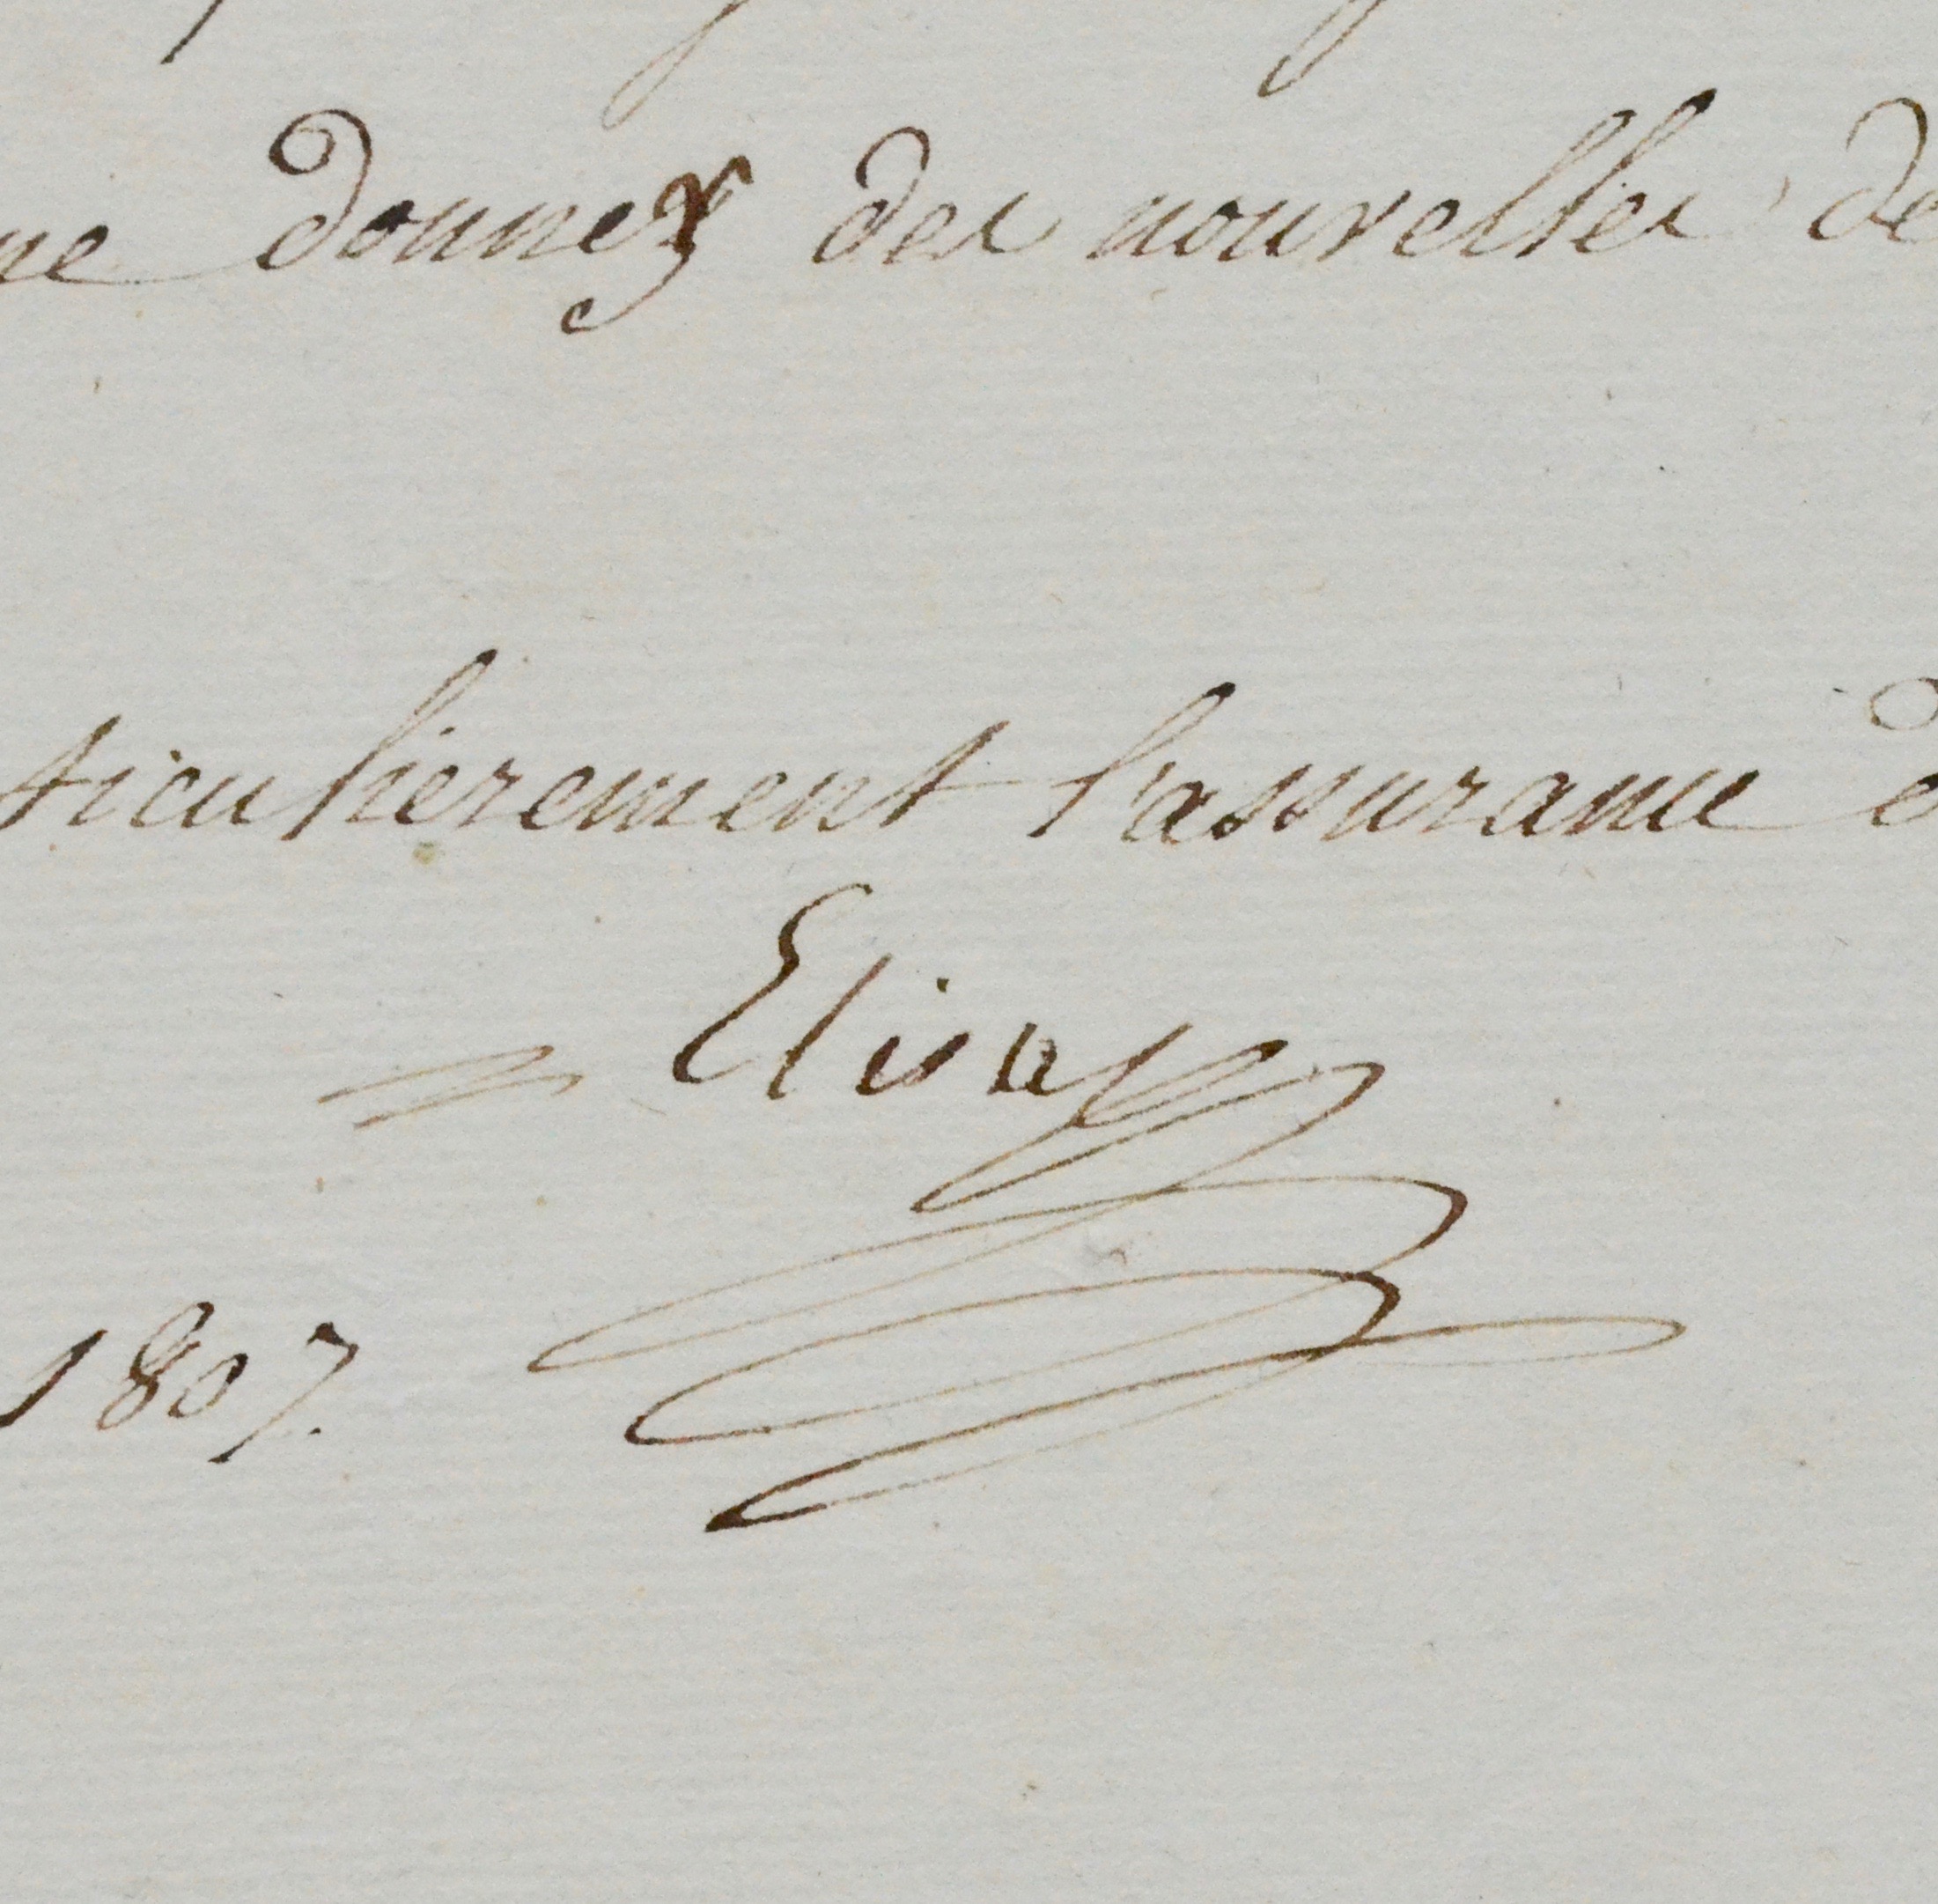 me donnez des nouvelles de
ticulièrement l'assurance d
Elisa
1807.